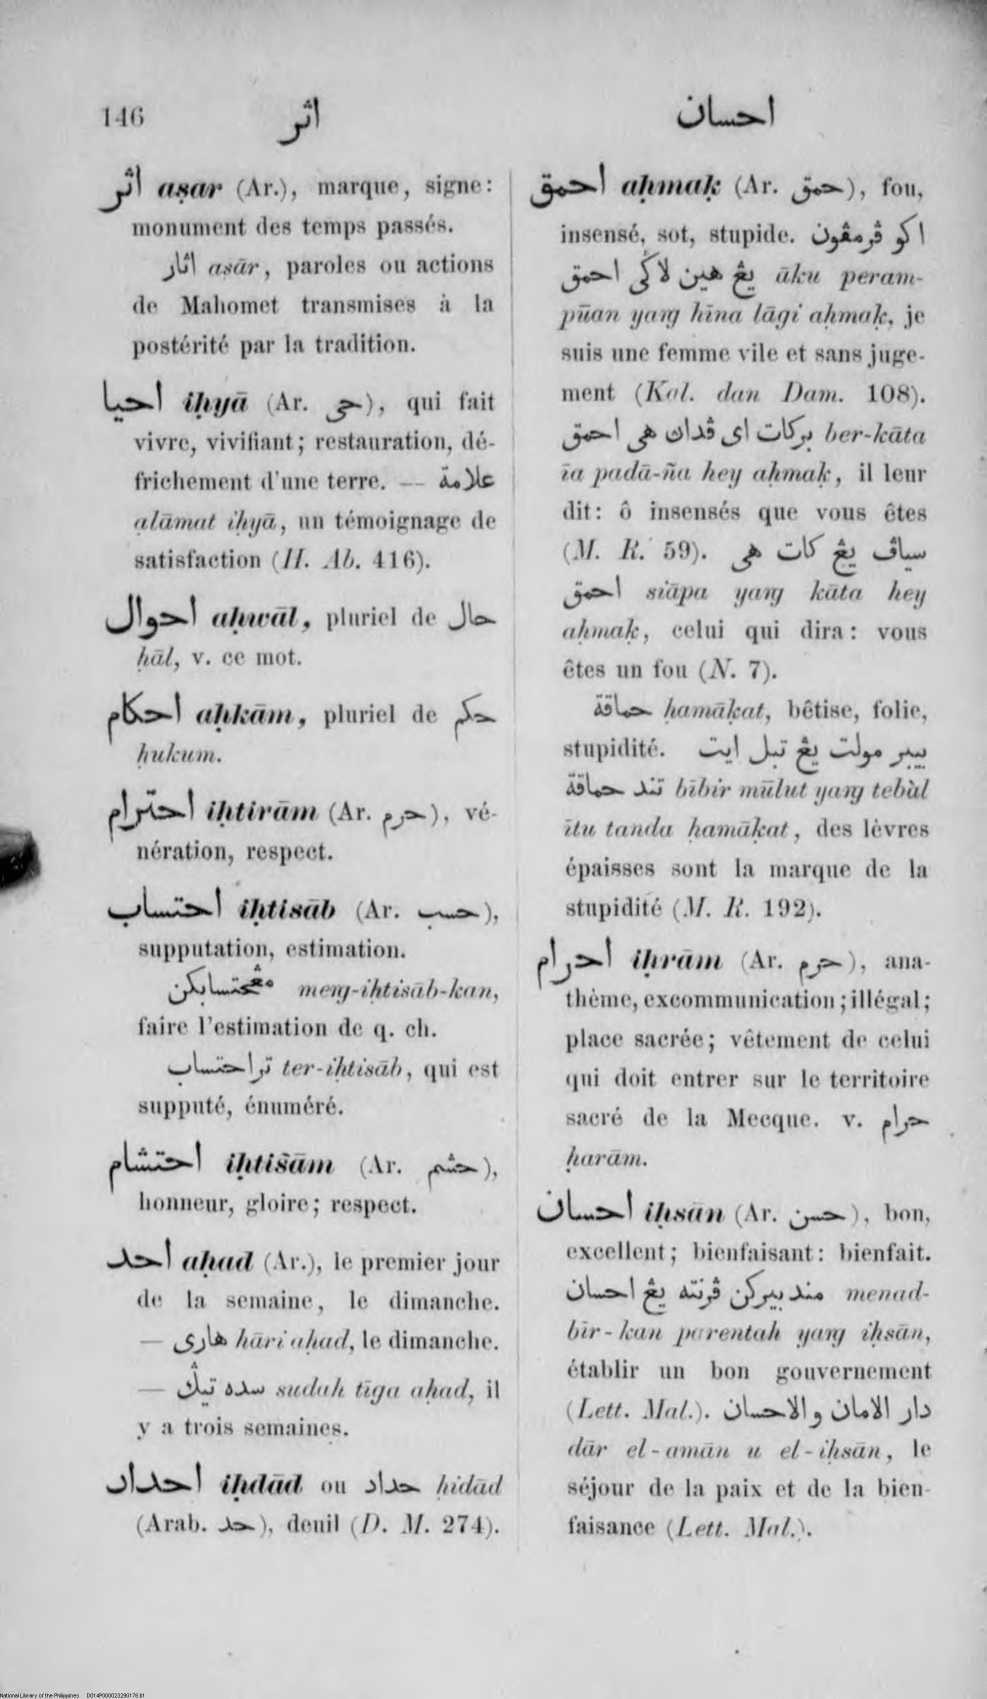 146
اثر
احسان
اثر aṣar (Ar.), marque, signe:
monument des temps passés.
اثار asār, paroles ou actions
de Mahomet transmises à la
postérité par la tradition.
احيا iḥyā (Ar. حى), qui fait
vivre, vivifiant; restauration, dé-
frichement d'une terre. — علامة
alāmat ihyā, un témoignage de
satisfaction (H. Ab. 416).
احوال aḥwāl, pluriel de حال
ḥāl, v. ce mot.
احكام aḥkām, pluriel de حكم
ḥukum.
احترام iḥtirām (Ar. حرم), vé-
nération, respect.
احتساب iḥtisāb (Ar. حسب),
supputation, estimation.
مڠحتسابكن meṅg-iḥtisāb-kan,
faire l'estimation de q. ch.
تراحتساب ter-iḥtisāb, qui est
supputé, énuméré.
احتشام iḥtišām (Ar. حشم),
honneur, gloire; respect.
احد aḥad (Ar.), le premier jour
de la semaine, le dimanche.
— هارى hāri aḥad, le dimanche.
— سده تيݢ sudah tīga aḥad, il
y a trois semaines.
احداد iḥdād ou حداد ḥidād
(Arab. حد), deuil (D. M. 274).
احمق aḥmaḳ (Ar. حمق), fou,
insensé, sot, stupide. اكو ڤرمڤون
يڠ هين لاݢى احمق āku peram-
pūan yaṅg hīna lāgi aḥmaḳ, je
suis une femme vile et sans juge-
ment (Kal. dan Dam. 108).
بركات اى ڤداڽ هى احمق ber-kāta
īa padā-ña hey aḥmaḳ, il leur
dit: ô insensés que vous êtes
(M. R. 59). سياڤ يڠ كات هى
احمق siāpa yaṅg kāta hey
aḥmaḳ, celui qui dira: vous
êtes un fou (N. 7).
حماقة ḥamāḳat, bêtise, folie,
stupidité. بيبر مولت يڠ تبل ايت
تند حماقة bībir mūlut yaṅg tebùl
ītu tanda ḥamāḳat, des lèvres
épaisses sont la marque de la
stupidité (M. R. 192).
احرام iḥrām (Ar. حرم), ana-
thème, excommunication; illégal;
place sacrée; vêtement de celui
qui doit entrer sur le territoire
sacré de la Mecque. v. حرام
ḥarām.
احسان iḥsān (Ar. حسن), bon,
excellent; bienfaisant: bienfait.
مندبيركن ڤرنته يڠ احسان menad-
bīr-kan parentah yaṅg iḥsān,
établir un bon gouvernement
(Lett. Mal.). دار الامان والاحسان
dār el-amān u el-iḥsān, le
séjour de la paix et de la bien-
faisance (Lett. Mal.).
National Library of the Philippines